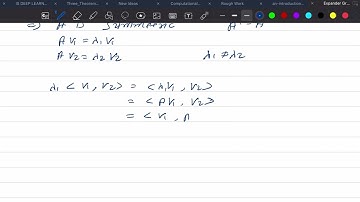 DEEP-LEARN...
Three_Theorem...
New Ideas
Computational...
Rough Work
an-introduction...
Expander Gr...
A v₁ = λ₁ v₁
A v₂ = λ₂ v₂ λ₁ ≠ λ₂
λ₁ < v₁ , v₂ > = < λ₁v₁ , v₂ >
= < A v₁ , v₂ >
= < v₁ , A